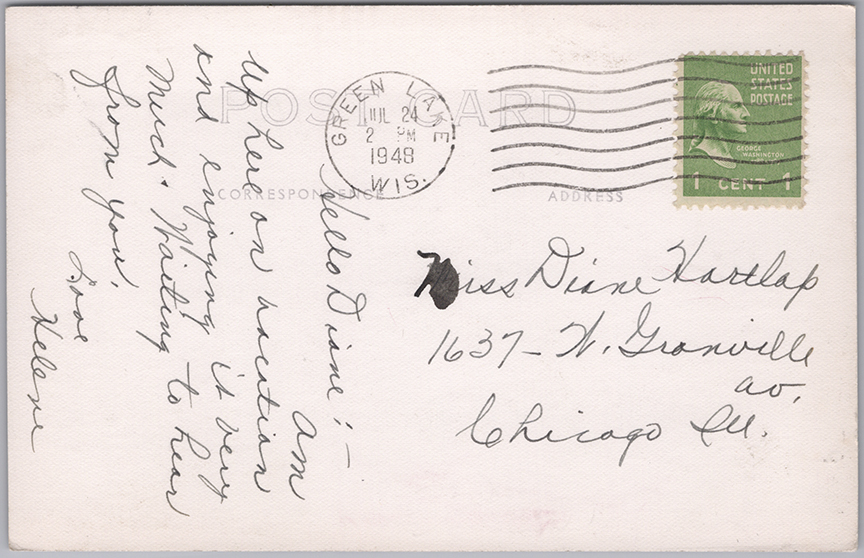 POST CARD
GREEN LAKE
JUL 24
2 PM
1948
WIS.
UNITED
STATES
POSTAGE
GEORGE
WASHINGTON
1 CENT 1
CORRESPONDENCE
ADDRESS
Hello Diane: –
Am
up here on vacation
and enjoying it very
much. Waiting to hear
from you.
Love
Helene
Miss Diane Hartlap
1637 – W. Granville
av.
Chicago Ill.